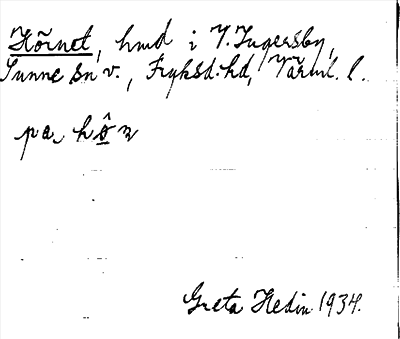 Hörnet, hmd i V. Ingersby,
Sunne sn v., Fryksd. hd, Värml. l.
pa, hô̱n
Greta Hedin 1934.